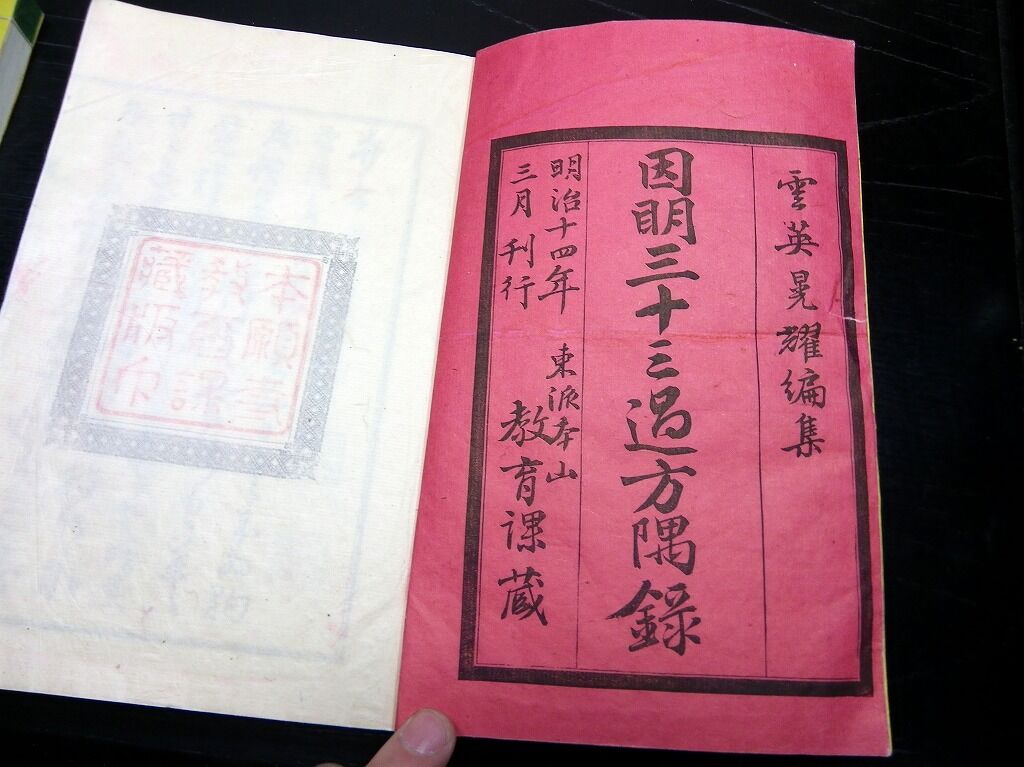 雲英晃耀編集
因明三十三過方隅録
明治十四年
三月刊行
東派本山
教育課蔵
本願寺
教育課
蔵版印